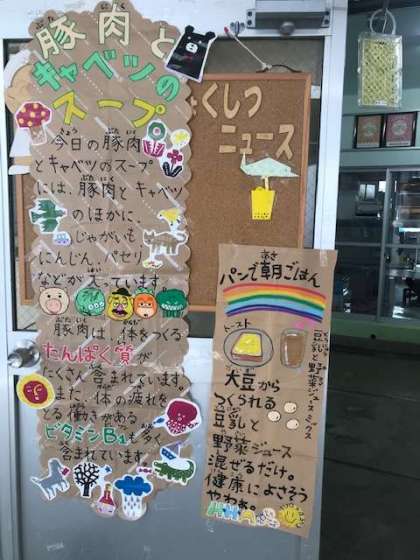 豚肉と
キャベツの
スープ
今日の豚肉
とキャベツのスープ
には、豚肉とキャベツ
のほかに、
じゃがいも
にんじん、パセリ
などが入っています。
豚肉は、体をつくる
たんぱく質が
たくさん含まれています。
また、体の疲れを
とる働きがある
ビタミンB₁も多く
含まれています。
くしつ
ニュース
パンで朝ごはん
トースト
豆乳と野菜ジュースミックス
大豆から
つくられる
豆乳と
野菜ジュース
混ぜるだけ。
健康によさそう
やわぁ。